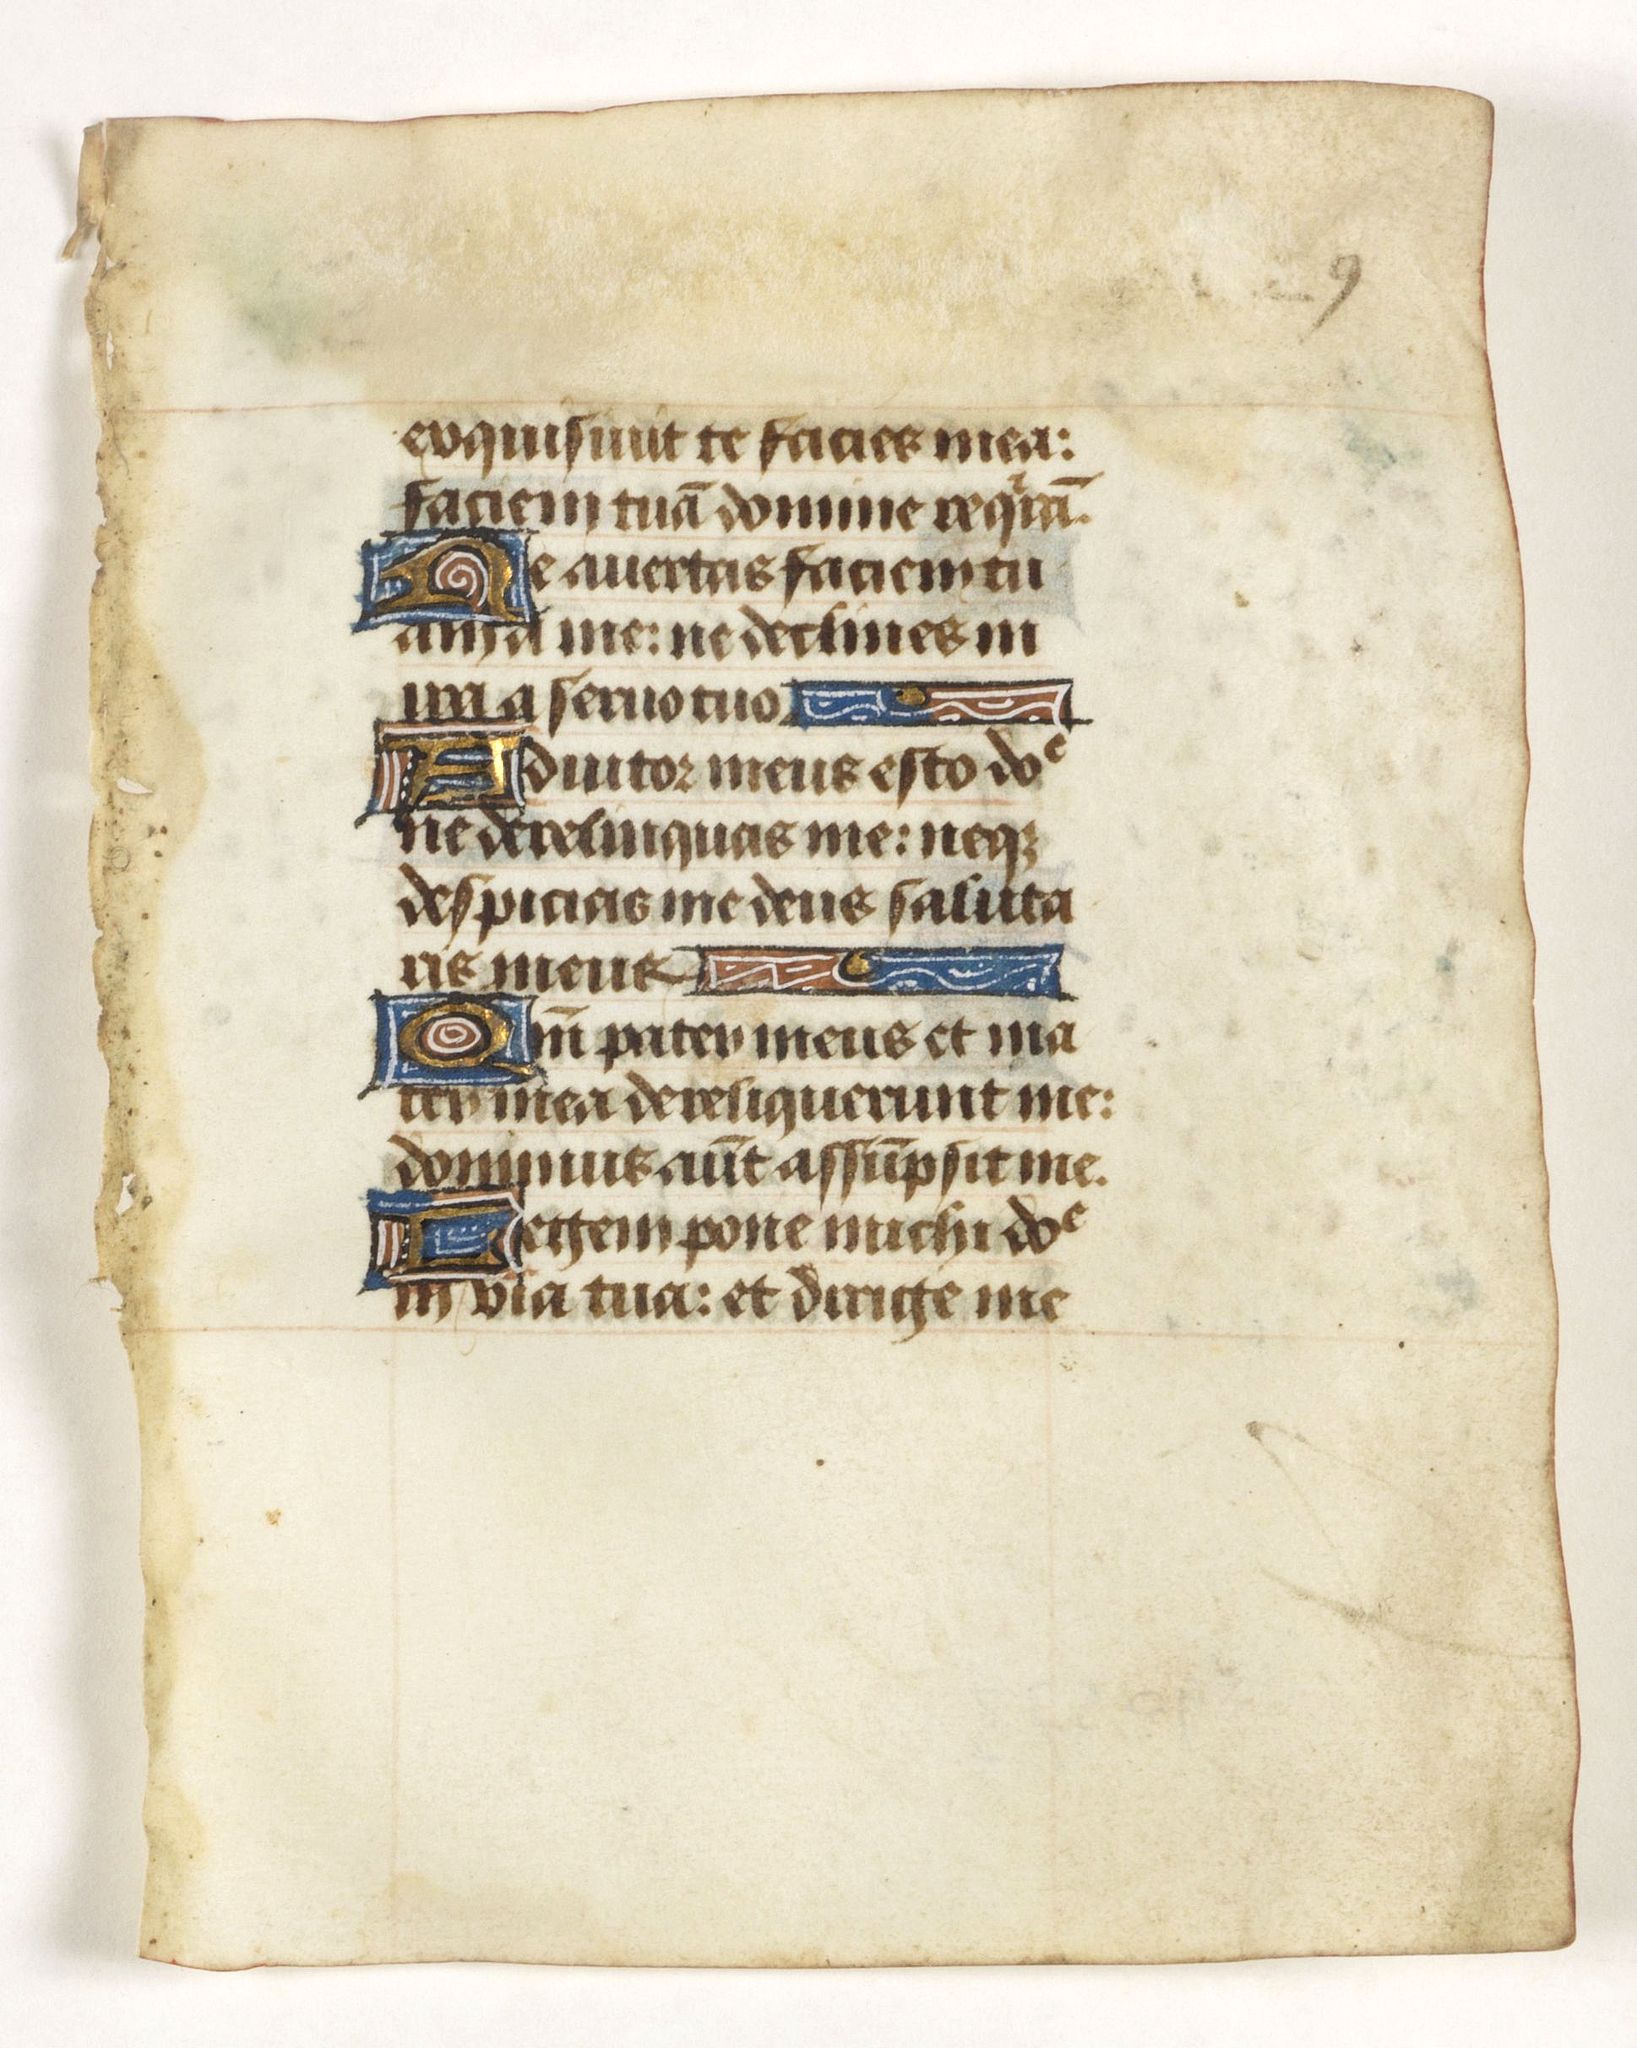 9
exquisiuit te facies mea:
faciem tuā domine reqͥrā.
Ne auertas faciem tu
am a me: ne declines in
ira a seruo tuo
Adiutor meus esto doᵉ
ne derelinquas me: neqꝫ
despicias me deus saluta
ris meus
Qm̄ pater meus et ma
ter mea dereliquerunt me:
dominus aut̄ assūpsit me.
Legem pone michi doᵉ
in via tua: et dirige me